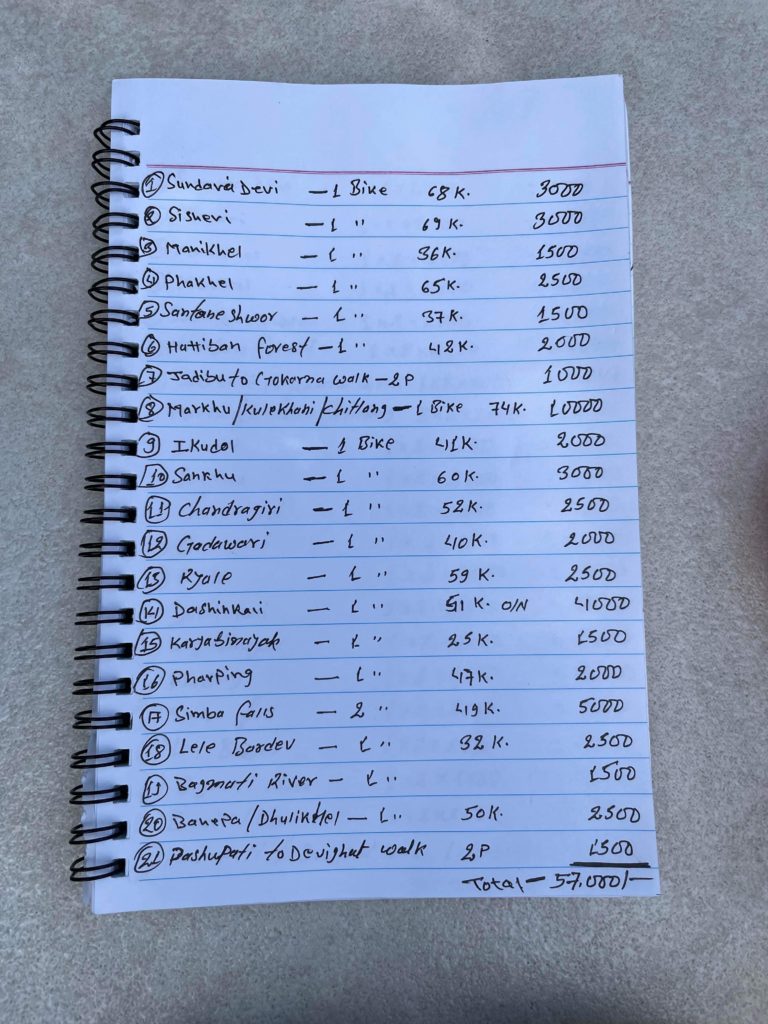 ① Sundara Devi — 1 Bike 68 K. 3000
② Sisneri — 1 " 69 K. 3000
③ Manikhel — 1 " 36 K. 1500
④ Phakhel — 1 " 65 K. 2500
⑤ Santaneshwor — 1 " 37 K. 1500
⑥ Hattiban forest — 1 " 48 K. 2000
⑦ Jadibu to Gokarna walk — 2P 1000
⑧ Markhu/Kulekhani/Chitlang — 1 Bike 74 K. 10000
⑨ Ikudol — 1 Bike 41 K. 2000
⑩ Sankhu — 1 " 60 K. 3000
⑪ Chandragiri — 1 " 52 K. 2500
⑫ Godawari — 1 " 40 K. 2000
⑬ Kyale — 1 " 59 K. 2500
⑭ Dashinkali — 1 " 51 K. O/N 4000
⑮ Karyabinayak — 1 " 25 K. 1500
⑯ Pharping — 1 " 47 K. 2000
⑰ Simba falls — 2 " 49 K. 5000
⑱ Lele Bordev — 1 " 32 K. 2500
⑲ Bagmati River — 1 " 1500
⑳ Banepa/Dhulikhel — 1 " 50 K. 2500
㉑ Pashupati to Devighat walk 2P 1500
Total — 57,000/-